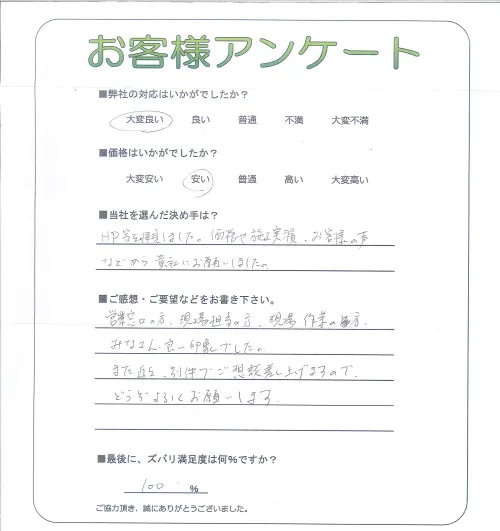 お客様アンケート
■弊社の対応はいかがでしたか？
大変良い 良い 普通 不満 大変不満
■価格はいかがでしたか？
大変安い 安い 普通 高い 大変高い
■当社を選んだ決め手は？
HP等を拝見しました。価格や施工実績、お客様の声
などから貴社にお願いしました。
■ご感想・ご要望などをお書き下さい。
営業窓口の方、現場担当の方、現場作業の方、
みなさん良い印象でした。
また 別件でご相談差し上げますので、
どうぞよろしくお願いします。
■最後に、ズバリ満足度は何％ですか？
100 ％
ご協力頂き、誠にありがとうございました。